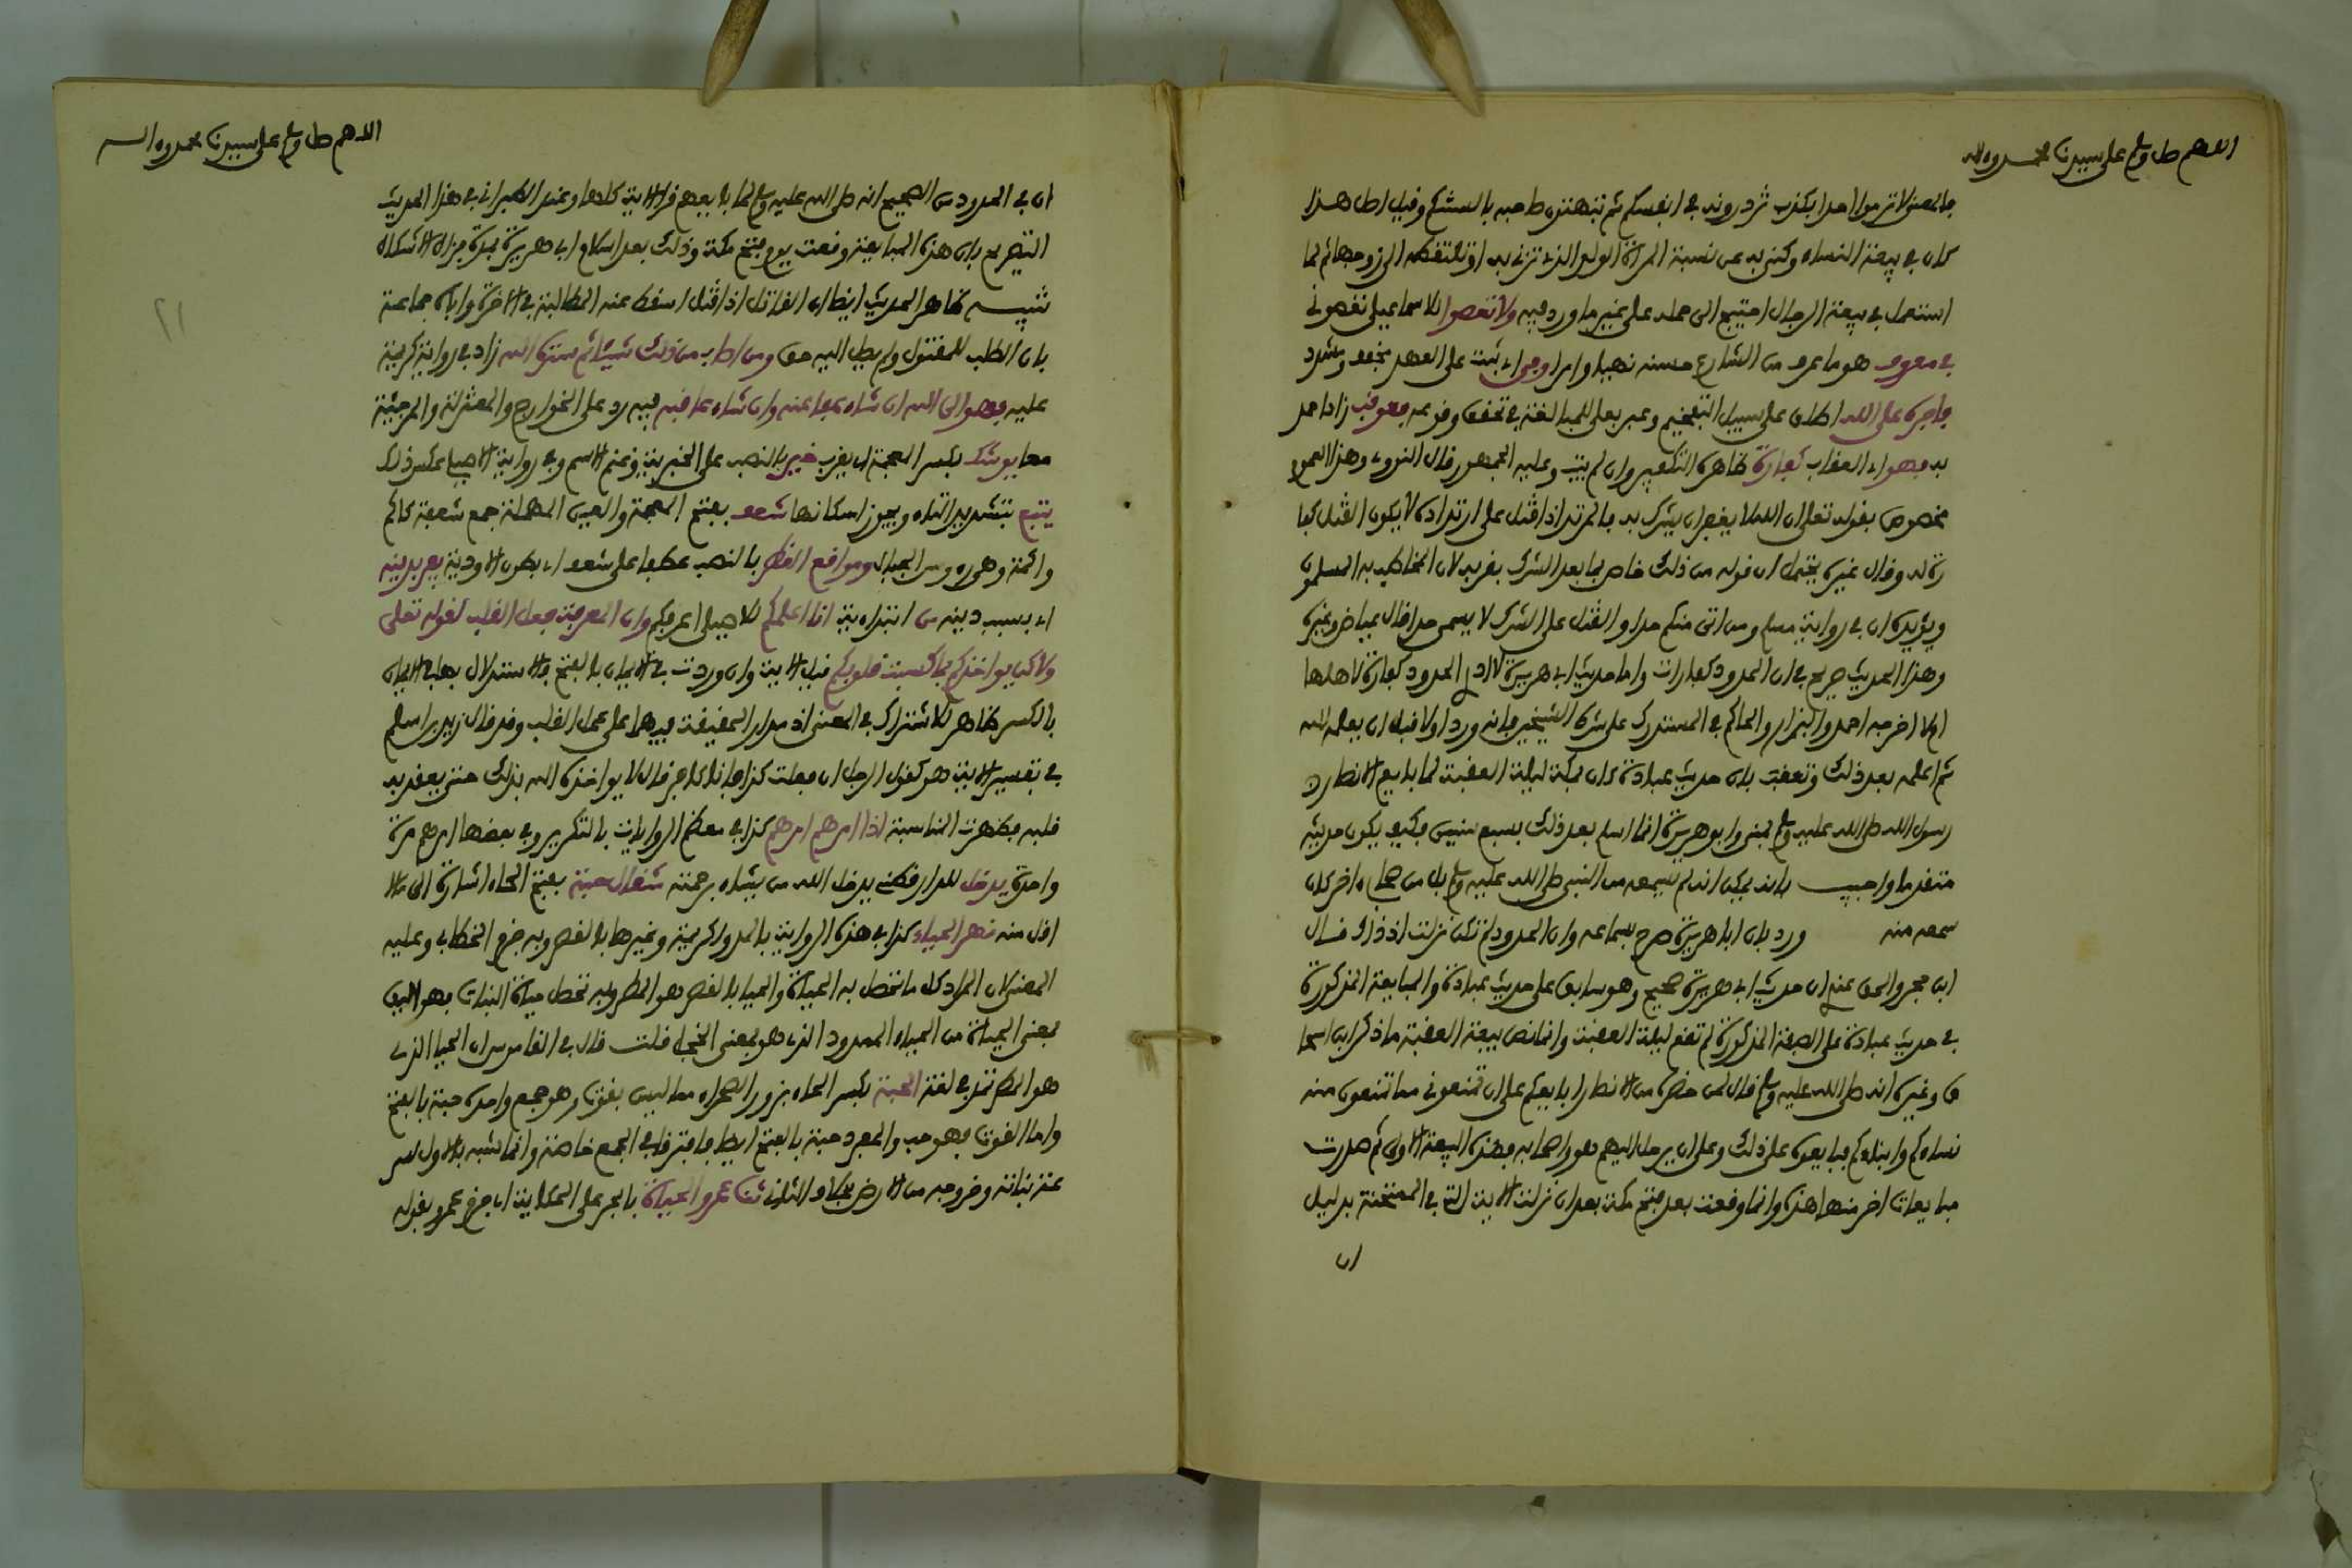 اللهم صل وسلم على سيدنا محمد وءاله
فالمعنى لا ترموا احدا بكذب تزورونه في انفسكم ثم تبهتون صاحبه بالسنتكم وقيل اصل هذا
كان في بيعة النساء وكني به عن نسبة المراة الولد الذي تزني به او تلتقطه الى زوجها ثم لما
استعمل في بيعة الرجال احتيج الى حمله على غير ما ورد فيه ولا تعصوا للاسماعيلي تعصوني
في معروف هو ما عرف من الشارع حسنه نهيا وامرا وفى اي ثبت على العهد مخفف ومشدد
فاجره على الله اطلق على سبيل التفخيم وعبر بعلى للمبالغة في تحقق وقوعه فعوقب زاد احمد
به فهو اي العقاب كفارة ظاهره التكفير وان لم يتب وعليه الجمهور وقال النووي وهذا العموم
مخصوص بقوله تعلى ان الله لا يغفر ان يشرك به فالمرتد اذا قتل على ارتداده لا يكون القتل كفا
رة له وقال غيره يحتمل ان قوله من ذلك خاص بما بعد الشرك بقرينة لان المخاطب به المسلمون
ويؤيده ان في رواية مسلم ومن اتى منكم حدا والقتل على الشرك لا يسمى حدا قال عياض وغيره
وهذا الحديث صريح في ان الحدود كفارات واما حديث ابي هريرة لا ادري الحدود كفارة لاهلها
ام لا اخرجه احمد والبزار والحاكم في المستدرك على شرط الشيخين فانه ورد اولا قبل ان يعلمه الله
ثم اعلمه بعد ذلك وتعقب بان حديث عبادة كان بمكة ليلة العقبة لما بايع الانصار
رسول الله صلى الله عليه وسلم بمنى وابو هريرة انما اسلم بعد ذلك بسبع سنين فكيف يكون حديثه
متقدما واجيب بانه يمكن انه لم يسمعه من النبي صلى الله عليه وسلم بل من صحابي ءاخر كان
سمعه منه ورد بان ابا هريرة صرح بسماعه وان الحدود لم تكن نزلت اذ ذاك قال
ابن حجر والحق عندي ان حديث ابي هريرة صحيح وهو سابق على حديث عبادة والمبايعة المذكورة
في حديث عبادة على الصفة المذكورة لم تقع ليلة العقبة وانما نص بيعة العقبة ما ذكر ابن اسحا
ق وغيره انه صلى الله عليه وسلم قال لمن حضر من الانصار ابايعكم على ان تمنعوني مما تمنعون منه
نساءكم وابناءكم فبايعوه على ذلك وعلى ان يرحل اليهم هو واصحابه فهذه البيعة الاولى ثم صدرت
مبايعات اخر منها هذه وانما وقعت بعد فتح مكة بعد ان نزلت الاية التي في الممتحنة بدليل
ان
اللهم صل وسلم على سيدنا محمد وءاله
٢١
ان في الحدود من الصحيح انه صلى الله عليه وسلم لما بايعهم قرا الاية كلها وعند الطبراني في هذا الحديث
التصريح بان هذه المبايعة وقعت يوم فتح مكة وذلك بعد اسلام ابي هريرة بمدة فزال الاشكال
تنبيه ظاهر الحديث ايضا ان القاتل اذا قتل اسقط عنه المطالبة في الاخرة واباه جماعة
بان الطلب للمقتول ولم يصل اليه حق ومن اصاب من ذلك شيئا ثم ستره الله زاد في رواية كريمة
عليه فهو الى الله ان شاء عفا عنه وان شاء عاقبه فيه رد على الخوارج والمعتزلة والمرجئة
معا يوشك بكسر المعجمة اي يقرب خير بالنصب على الخبرية وغنم الاسم وفي رواية الاصيلي عكس ذلك
يتبع بتشديد التاء ويجوز اسكانها شعف بفتح المعجمة والعين المهملة جمع شعفة كاكم
واكمة وهي رءوس الجبال ومواقع القطر بالنصب عطفا على شعف اي بطون الاودية يفر بدينه
اي بسبب دينه من ابتداءية انا اعلمكم للاصيلي اعرفكم وان المعرفة فعل القلب لقوله تعلى
ولاكن يواخذكم بما كسبت قلوبكم قيل الاية وان وردت في الايمان بالفتح فالاستدلال بها في الايمان
بالكسر ظاهر للاشتراك في المعنى اذ مدار الحقيقة فيهما على عمل القلب وقد قال زيد بن اسلم
في تفسير الاية هو كقول الرجل ان فعلت كذا فانا كافر قال لا يواخذه الله بذلك حتى يعقد به
قلبه فظهرت المناسبة اذا امرهم امرهم كذا في معظم الروايات بالتكرير وفي بعضها امرهم مرة
واحدة يدخل للدارقطني يدخل الله من يشاء برحمته مثقال حبة بفتح الحاء اشارة الى ما لا
اقل منه نهر الحياء كذا في هذه الرواية بالمد ولكريمة وغيرها بالقصر وبه جزم الخطابي وعليه
المعنى لان المراد كل ما تحصل به الحياة والحيا بالقصر هو المطر وبه تحصل حياة النبات فهو اليق
بمعنى الحياة من الحياء الممدود الذي هو بمعنى الخجل قلت قال في القاموس ان الحيا الذي
هو المطر تمد في لغة الحبة بكسر الحاء بزور الصحراء مما ليس بقوت وهو جمع واحده حبة بالفتح
واما القوت فهو حب والمفرد حبة بالفتح ايضا فافترقا في الجمع خاصة وانما شبه بالاول لسر
عة نباته وخروجه من الارض بخلاف الثاني ثنا عمرو الحياة بالجر على الحكاية اي جزم عمرو بقوله